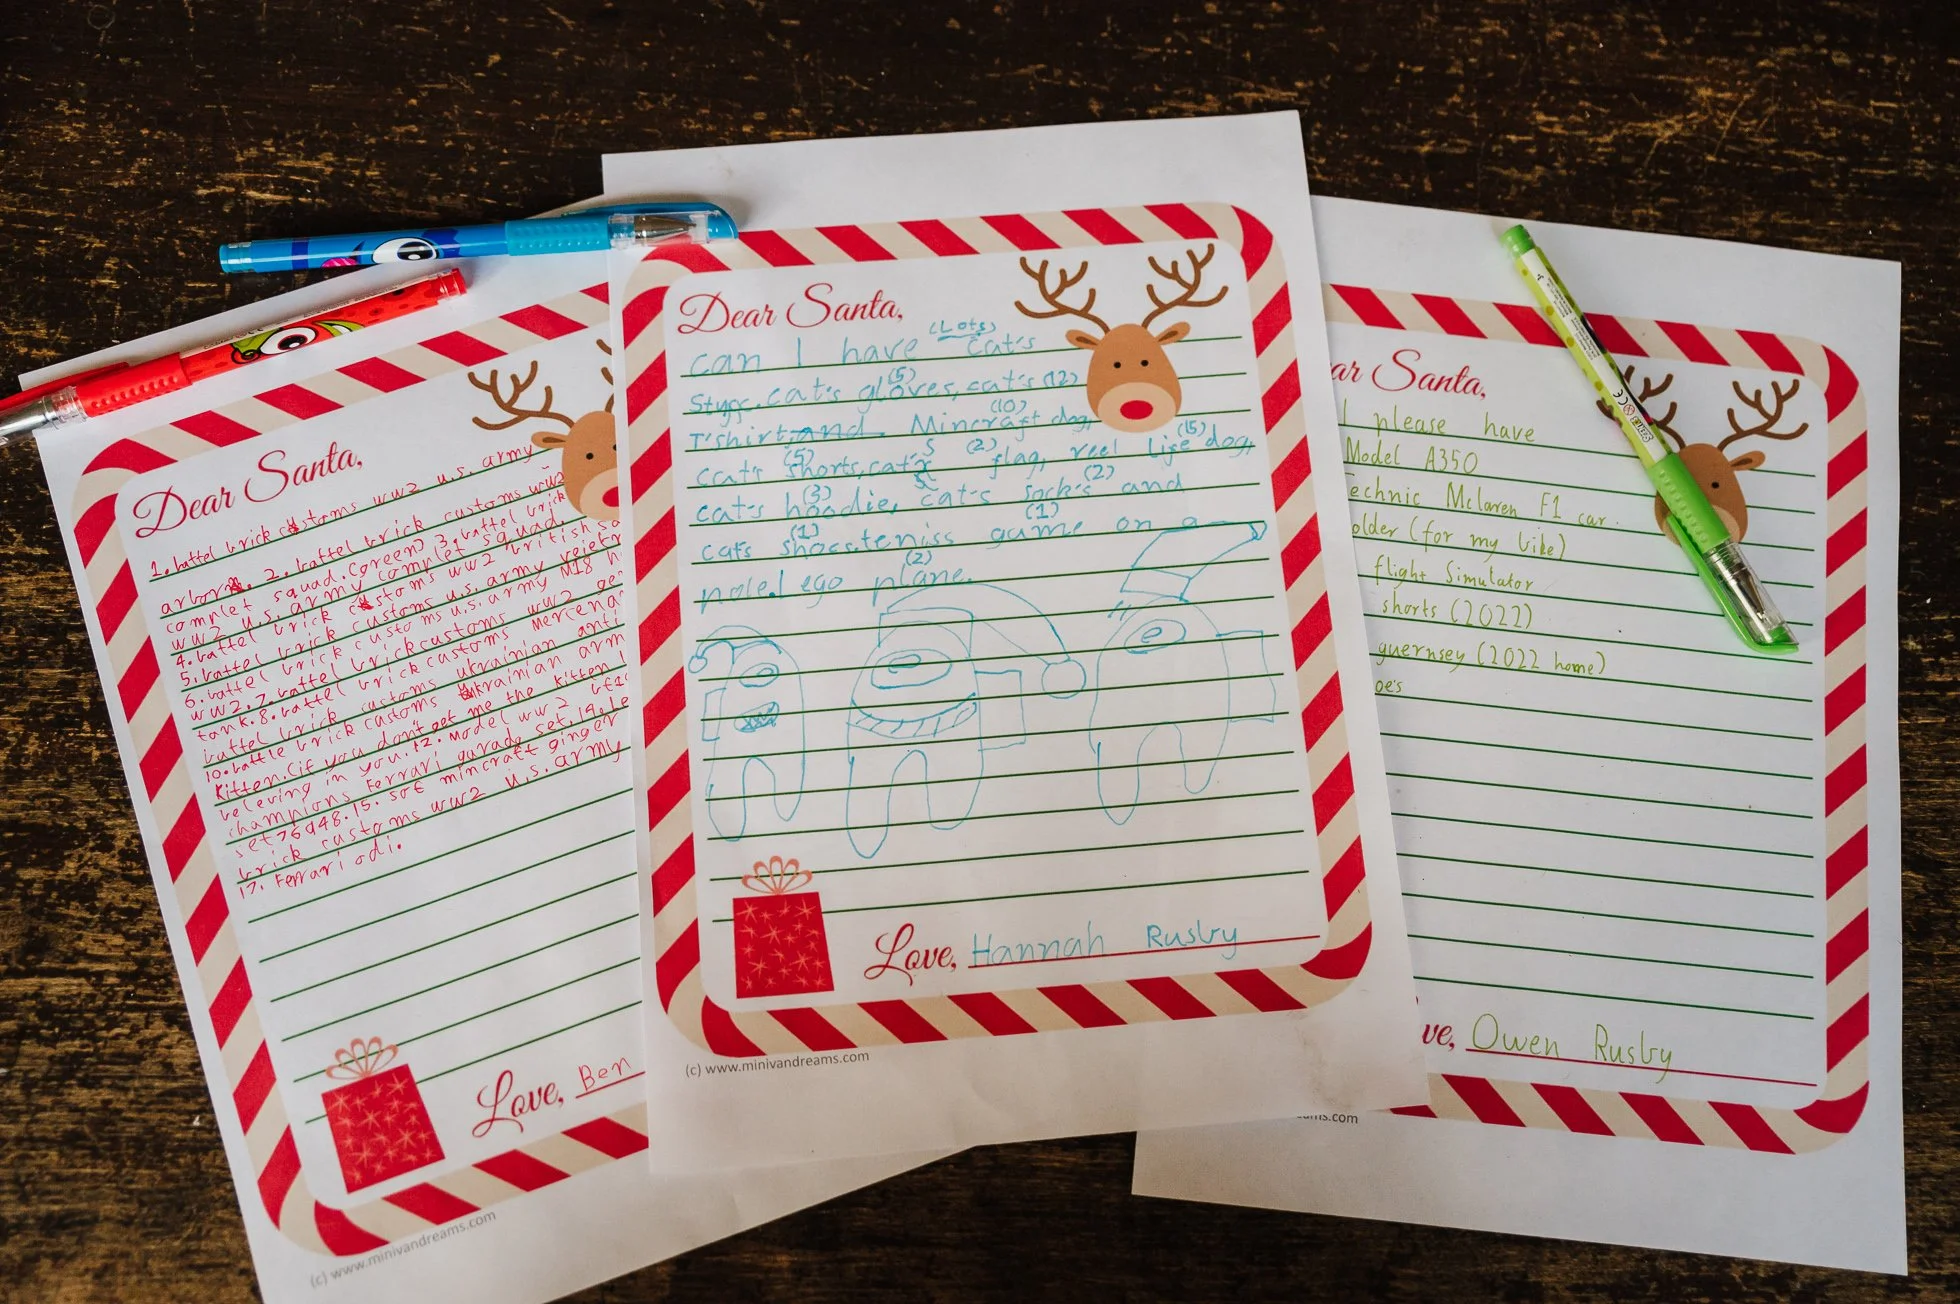 Dear Santa,
1. battel brick customs ww2 u.s. army
arbor 2. battel brick customs ww2
complet squad. (green) 3. battel brick
ww2 u.s. army complet squad.
4. battel brick customs ww2 british
5. battel brick customs u.s. army
6. battel brick customs u.s. army M18
ww2. 7. battel brick customs ww2
tank. 8. battel brick customs
battel brick customs ukrainian
10. battle brick customs ukrainian
Kitten. (if you don't get me the kitten
beleving in you. 12. Model ww2
champions Ferrari garade set. 14.
set 76948. 15. mincraft ginger
brick customs ww2 u.s. army
17. Ferrari
Love, Ben
(c) www.minivandreams.com
Dear Santa,
(Lots)
can I have cat's
(5) (12)
styff. cat's gloves, cat's
(10)
T'shirt, and Mincraft dog,
(5) s (2) (15)
cat's shorts, cat's flag, reel life dog,
(3) s (2)
cat's hoodie, cat's sock's and
(1) (1)
cats shoes. teniss game on a
(2)
pole. Lego plane.
Love, Hannah Rusby
(c) www.minivandreams.com
ar Santa,
I please have
Model A350
echnic Mclaren F1 car.
older (for my bike)
flight Simulator
shorts (2022)
guernsey (2022 home)
oe's
ve, Owen Rusby
ams.com